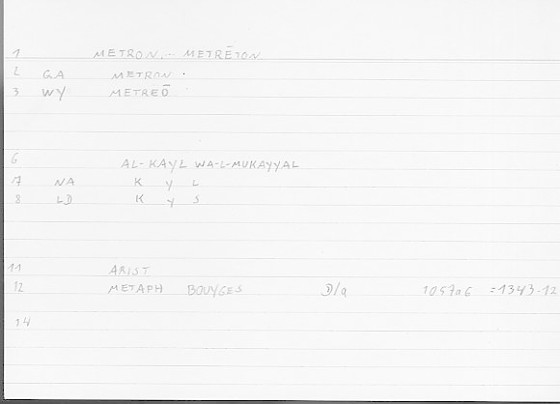 1 METRON. – METRĒTON
2 GA METRON .
3 WY METREŌ
6 AL-KAYL WA-L-MUKAYYAL
7 NA K Y L
8 LD K Y S
11 ARIST
12 METAPH BOUYGES /a 1057a6 =1343-12
14